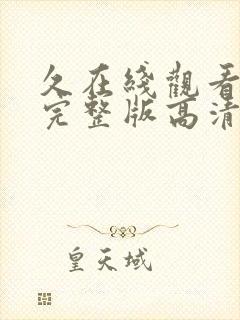 久在綫觀看
完整版高清
皇天域